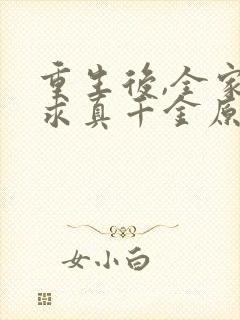 重生後,全家
求真千金原
女小白